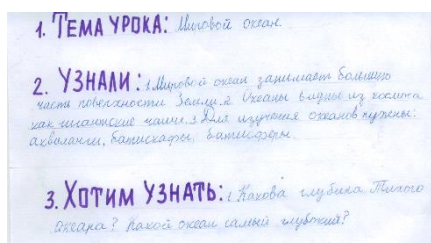 1. ТЕМА УРОКА: Мировой океан.
2. УЗНАЛИ: 1. Мировой океан занимает большую
часть поверхности Земли. 2. Океаны видны из космоса
как гигантские чаши. 3. Для изучения океанов нужны:
акваланги, батискафы, батисферы.
3. ХОТИМ УЗНАТЬ: 1. Какова глубина Тихого
океана? Какой океан самый глубокий?